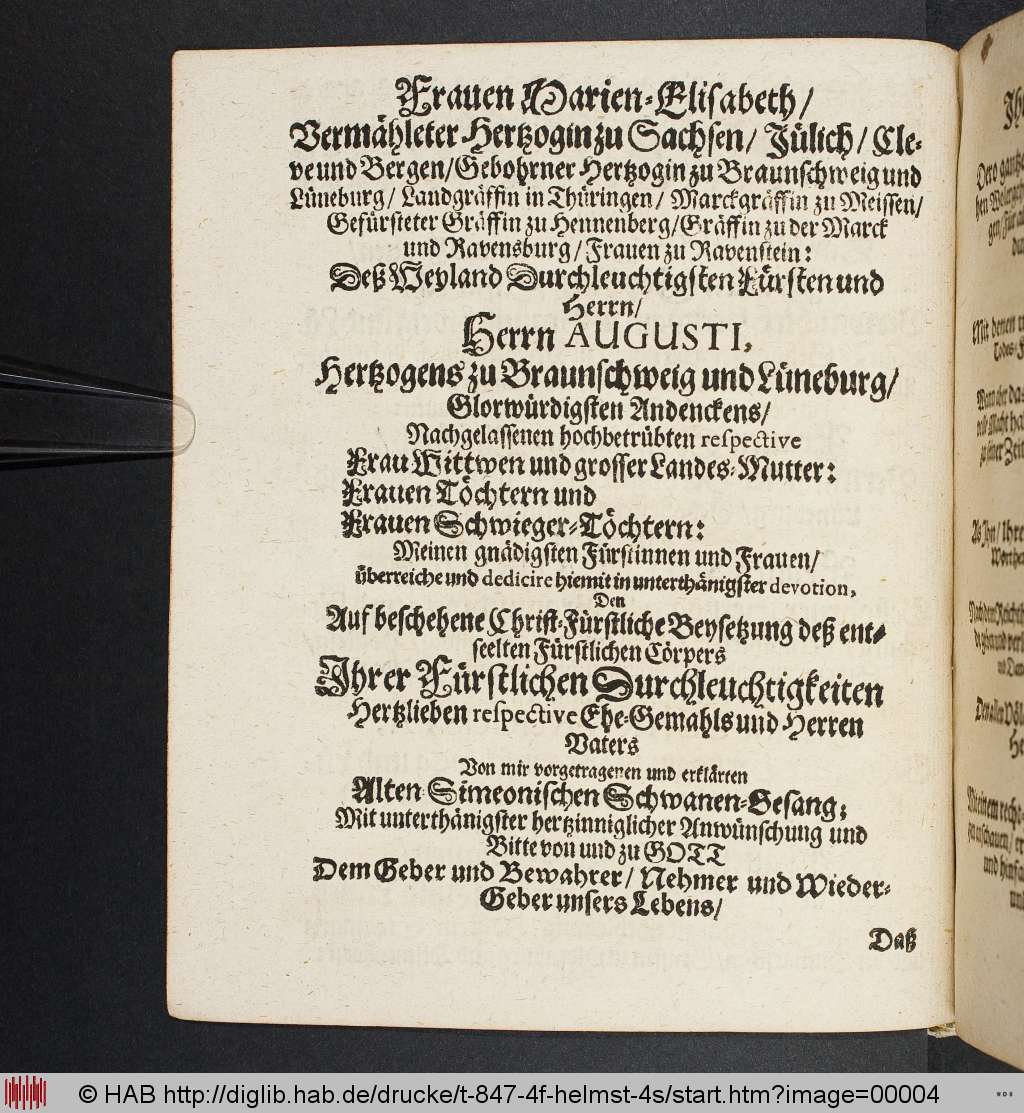 Frauen Marien-Elisabeth/
Vermähleter Hertzogin zu Sachsen/ Jülich/ Cle-
ve und Bergen/ Gebohrner Hertzogin zu Braunschweig und
Lüneburg/ Landgräffin in Thüringen/ Marckgräffin zu Meissen/
Gefürsteter Gräffin zu Hennenberg/ Gräffin zu der Marck
und Ravensburg/ Frauen zu Ravenstein:
Deß Weyland Durchleuchtigsten Fürsten und
Herrn/
Herrn AUGUSTI,
Hertzogens zu Braunschweig und Lüneburg/
Glorwürdigsten Andenckens/
Nachgelassenen hochbetrübten respective
Frau Wittwen und grosser Landes-Mutter:
Frauen Töchtern und
Frauen Schwieger-Töchtern:
Meinen gnädigsten Fürstinnen und Frauen/
überreiche und dedicire hiemit in unterthänigster devotion,
Den
Auf beschehene Christ-Fürstliche Beysetzung deß ent-
seelten Fürstlichen Cörpers
Ihrer Fürstlichen Durchleuchtigkeiten
Hertzlieben respective Ehe-Gemahls und Herren
Vaters
Von mir vorgetragenen und erklärten
Alten Simeonischen Schwanen-Gesang;
Mit unterthänigster hertzinniglicher Anwünschung und
Bitte von und zu GOTT
Dem Geber und Bewahrer/ Nehmer und Wieder-
Geber unsers Lebens/
Daß
© HAB http://diglib.hab.de/drucke/t-847-4f-helmst-4s/start.htm?image=00004